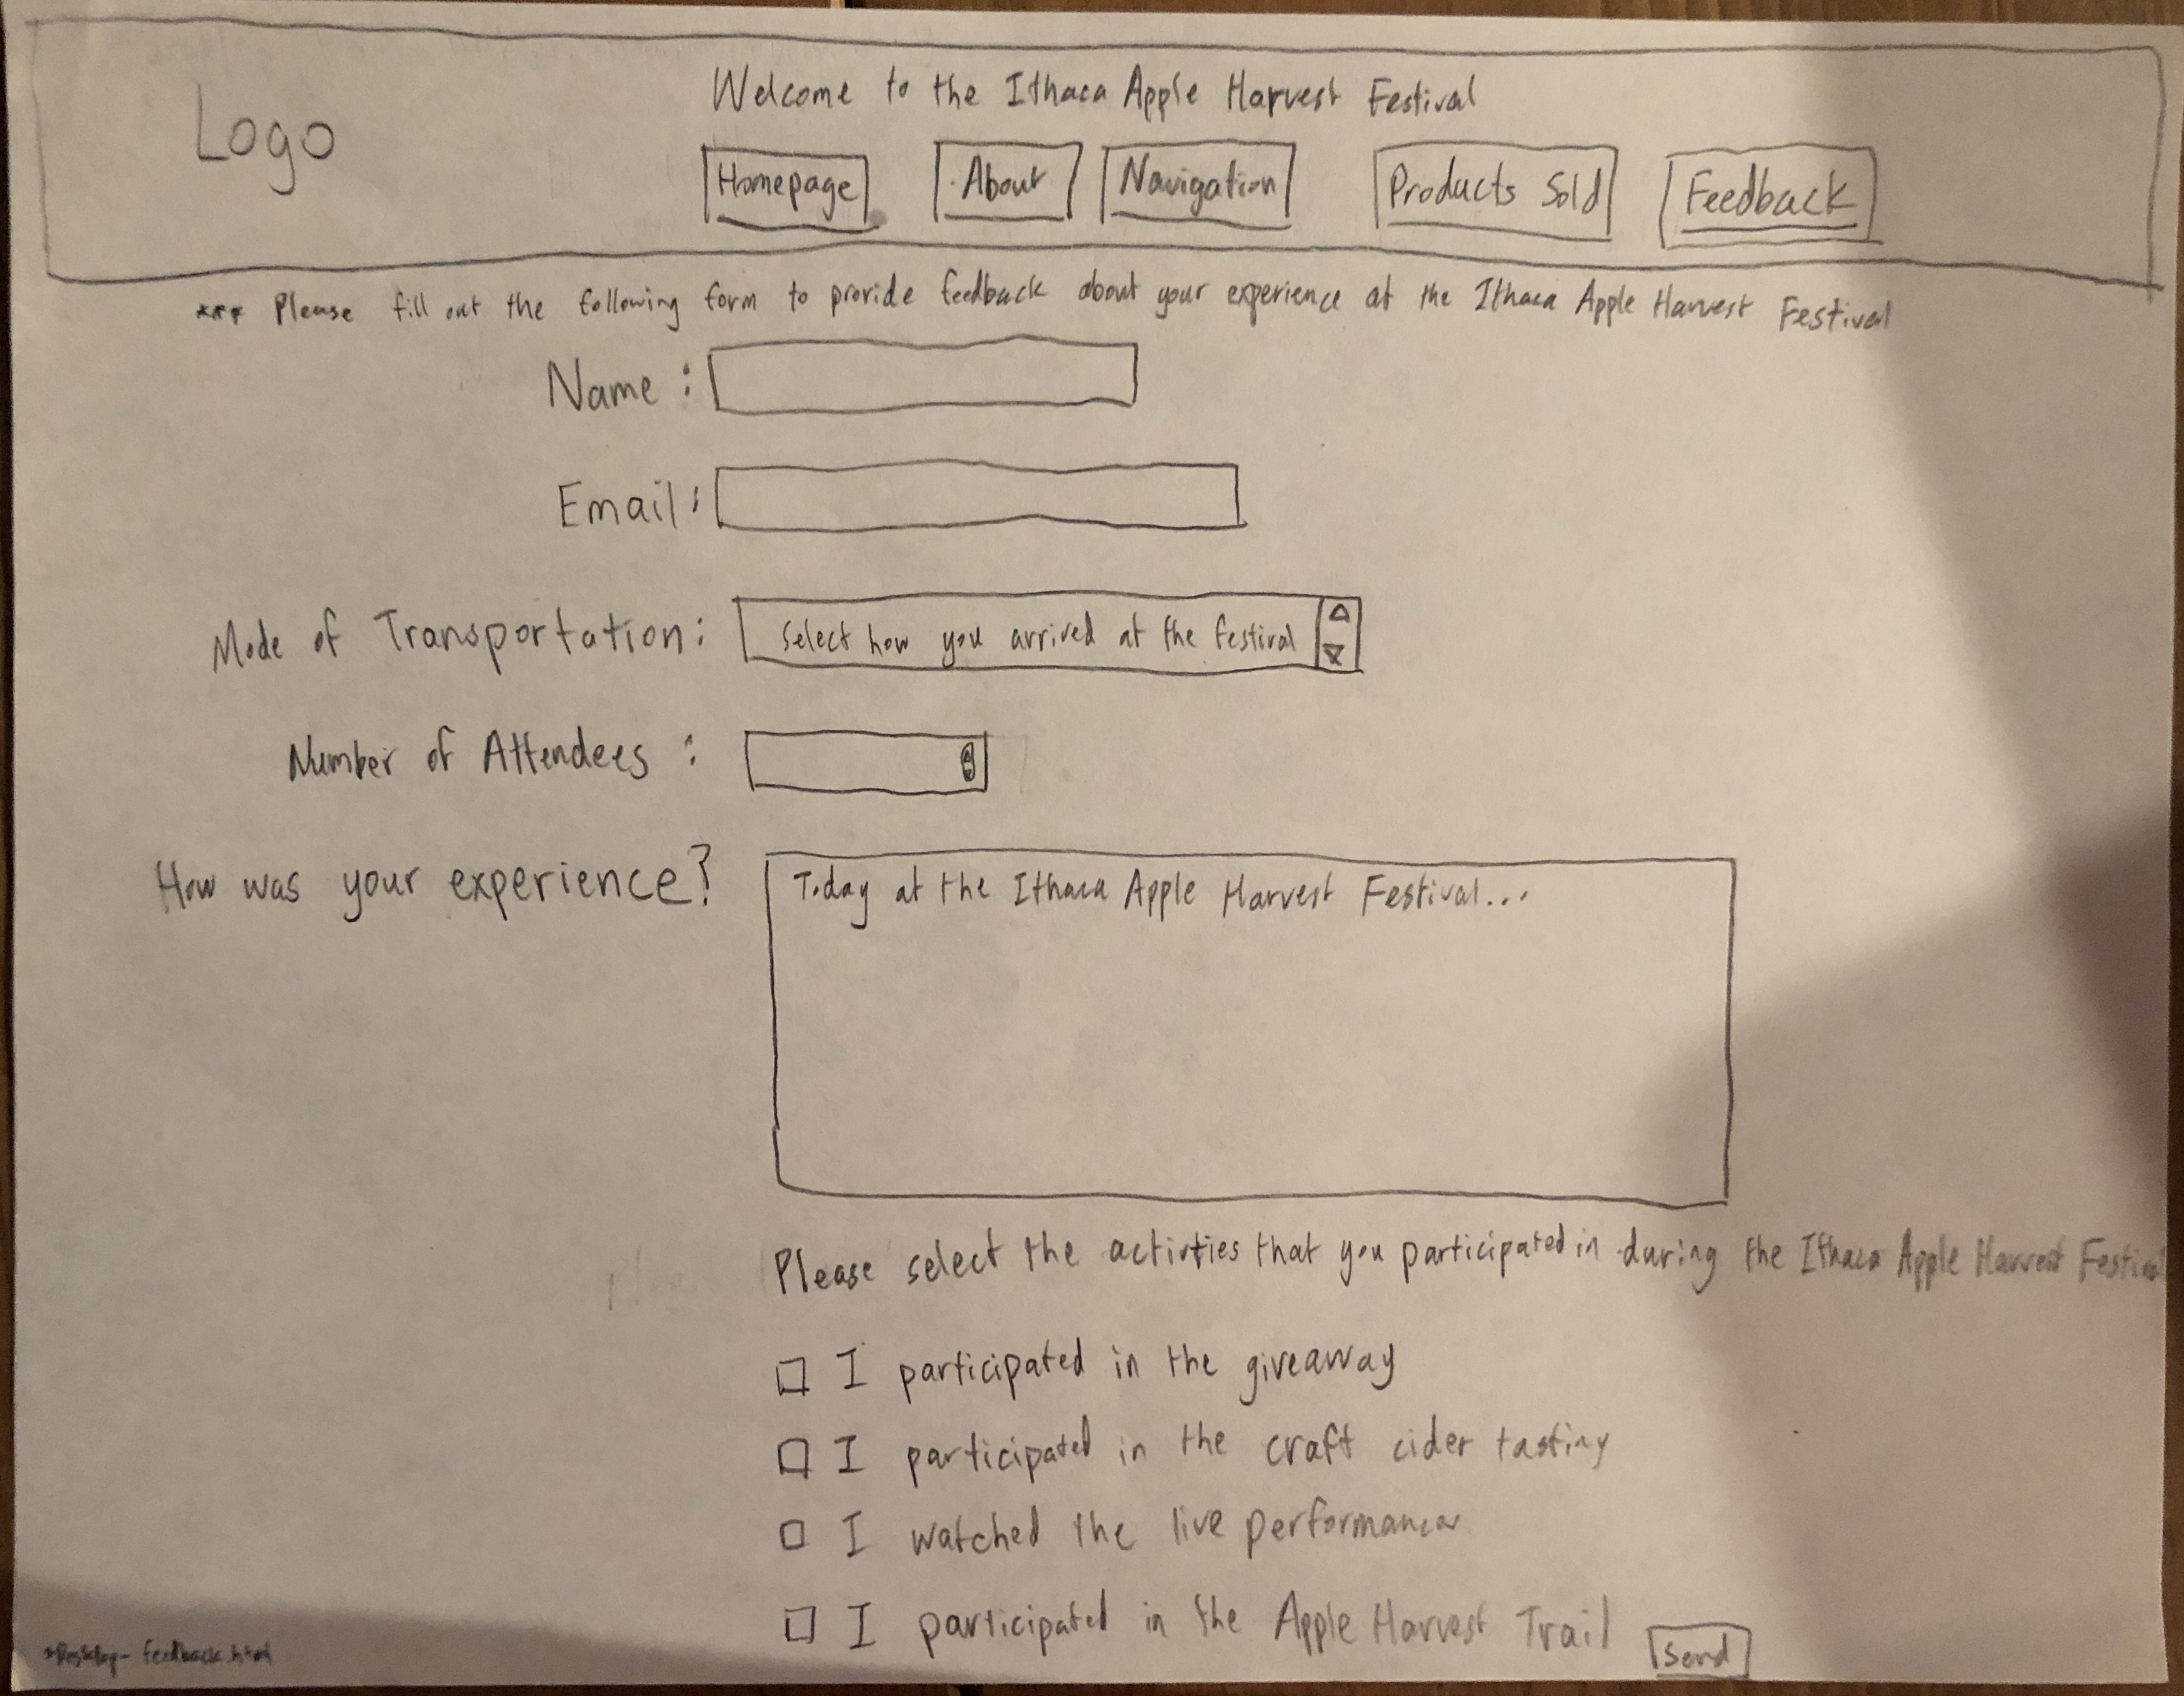 Welcome to the Ithaca Apple Harvest Festival
Logo
Homepage About Navigation Products Sold Feedback
*** Please fill out the following form to provide feedback about your experience at the Ithaca Apple Harvest Festival
Name :
Email :
Mode of Transportation: Select how you arrived at the festival
Number of Attendees :
How was your experience? Today at the Ithaca Apple Harvest Festival...
Please select the activties that you participated in during the Ithaca Apple Harvest Festival
I participated in the giveaway
I participated in the craft cider tasting
I watched the live performances
I participated in the Apple Harvest Trail
Send
*Desktop- feedback.html